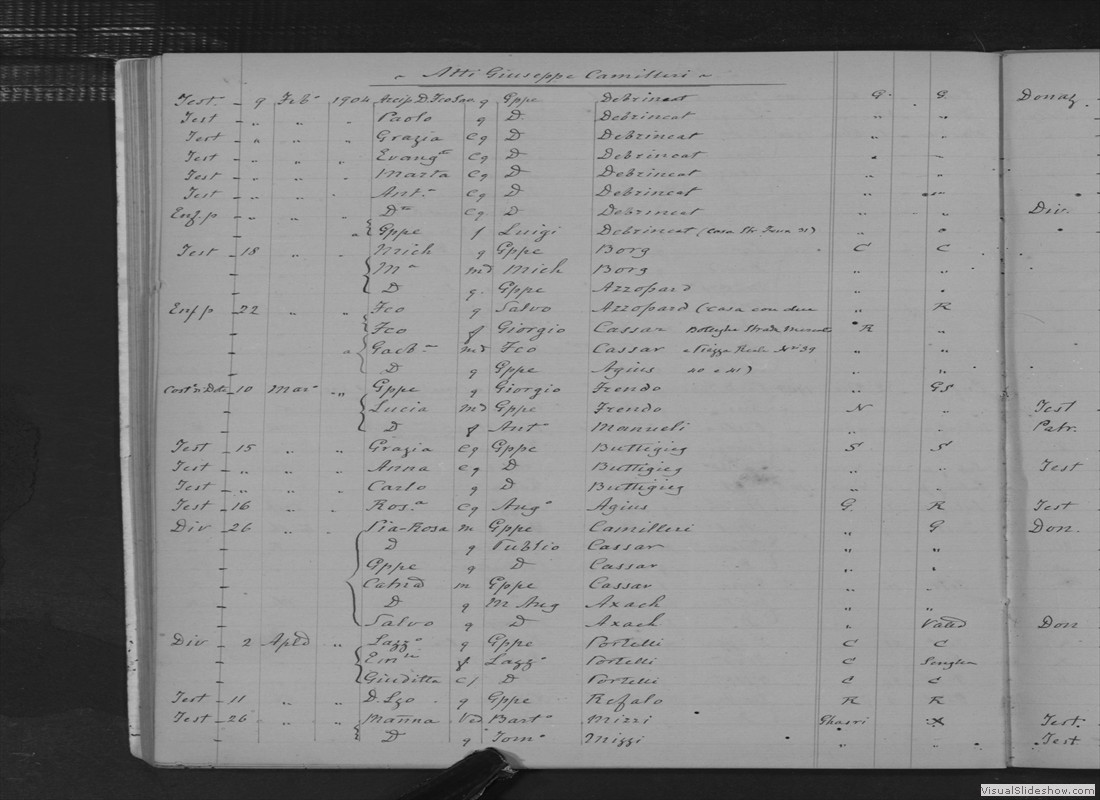 „ Atti Giuseppe Camilleri „
Test. 9 Feb° 1904 q Gppe Debrincat G. G. Donaz.
Test „ „ „ Paolo q D. Debrincat „ „
Test „ „ „ Grazia Cq D Debrincat „ „
Test „ „ „ Evang^a Cq D Debrincat „ „
Test „ „ „ Marta Cq D Debrincat „ „
Test „ „ „ Ant^a Cq D Debrincat „ „
Enf.p „ „ „ D^a Cq D Debrincat „ „ Div.
a { Gppe f Luigi Debrincat (Casa Str. 31) „ „
Test 18 „ „ Mich q Gppe Borg C C
M^a md Mich Borg „ „
D q. Gppe Azzopard „ „
Enf p 22 „ „ Fco q Salvo Azzopard (Casa con due „ R
Fco f Giorgio Cassar Botteghe Strada R „
a Md Fco Cassar e Piazza N° 39 „ „
D q Gppe Agius 40 e 41) „ „
10 Mar° „ Gppe q Giorgio Frendo „ GS
Lucia md Gppe Frendo N „ Test
D f Ant° Manueli „ „ Patr.
Test 15 „ „ Grazia Cq Gppe Buttigieg S S
Test „ „ „ Anna Cq D Buttigieg „ „ Test
Test „ „ „ Carlo q D Buttigieg „ „
Test 16 „ „ Ros.^a Cq Aug° Agius G. R Test
Div 26 „ „ Pia-Rosa m Gppe Camilleri „ G Don.
D q Publio Cassar „ „
Gppe q D Cassar „ „
m Gppe Cassar „ „
D q M Ang Axach „ „
Salvo q D Axach „ Valld Don
Div 2 Apld „ Lazz° q Gppe Portelli C C
f Lazz° Portelli C Senglea
Giuditta Cf D Portelli C C
Test 11 „ „ D. Lgo q Gppe Refalo R R
Test 26 „ „ Marina Ved Bart° Mizzi Gharri X Test.
D q Tom° Mizzi „ „ Test
VisualSlideshow.com